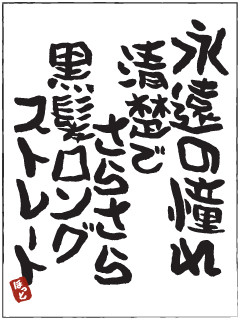 永遠の憧れ
清楚で
さらさら
黒髪ロング
ストレート
ほっと